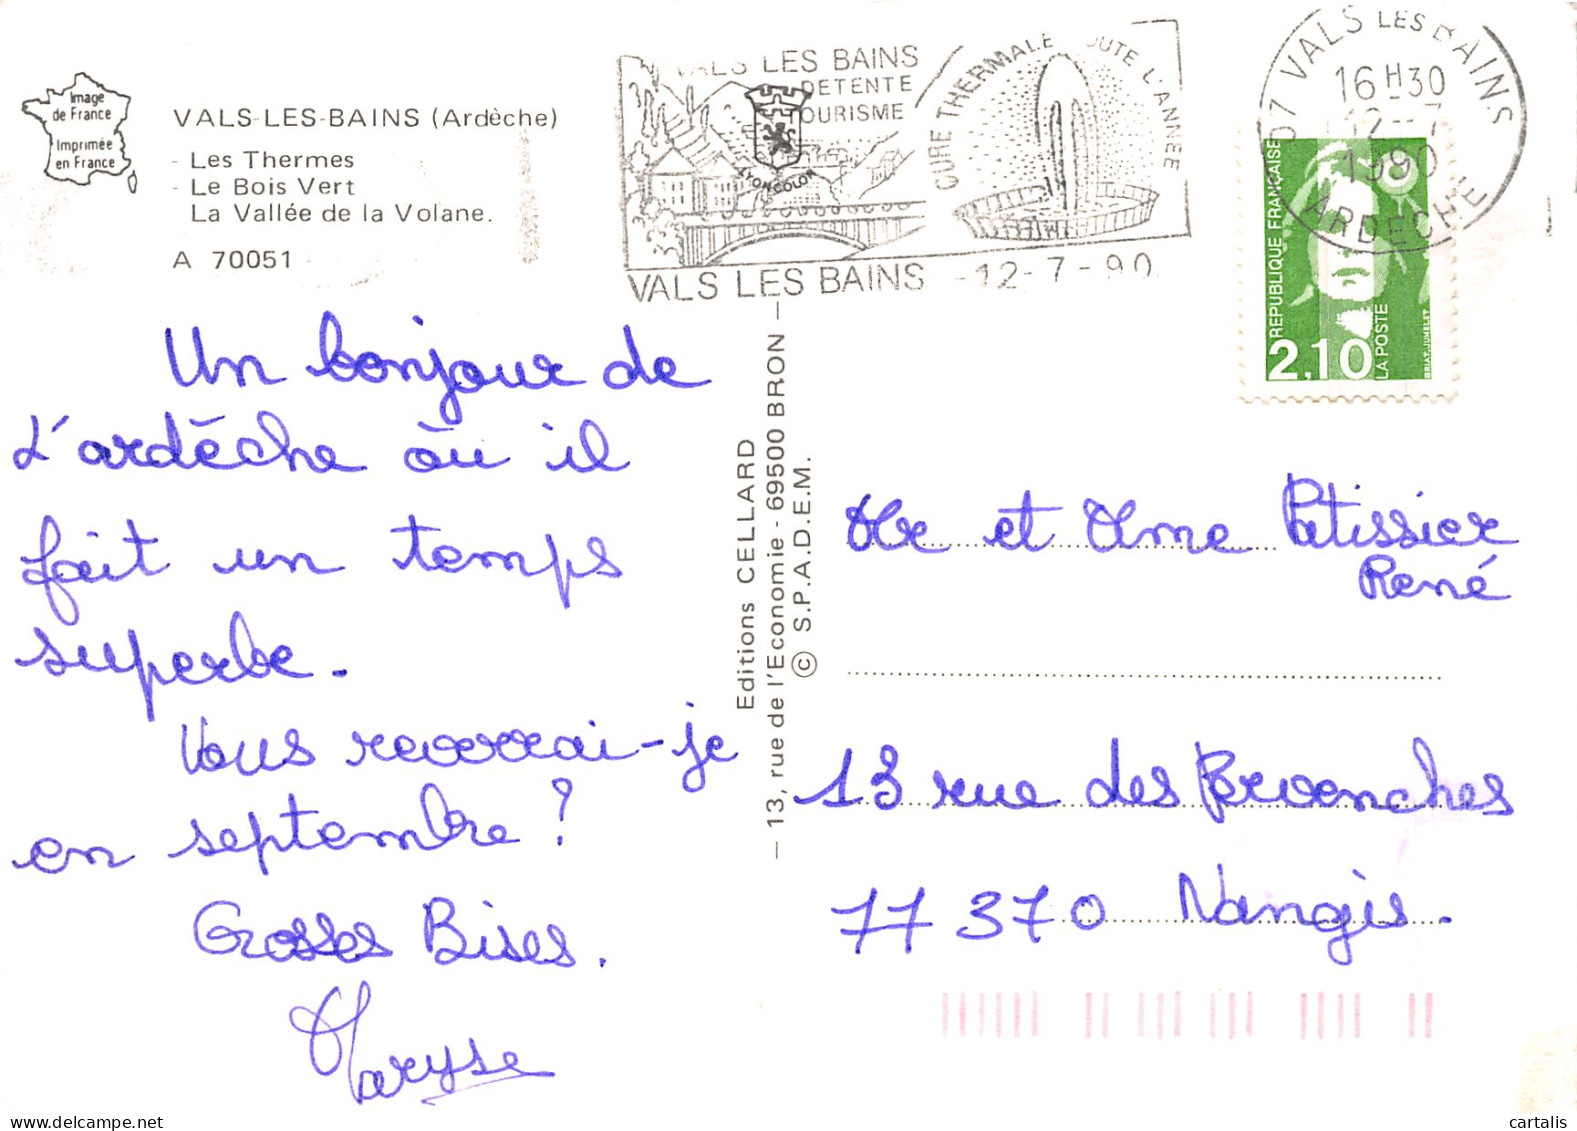 Image
de France
Imprimée
en France
VALS-LES-BAINS (Ardèche)
- Les Thermes
- Le Bois Vert
La Vallée de la Volane.
A 70051
VALS LES BAINS
DETENTE
TOURISME
LYONCOLOR
CURE THERMALE TOUTE L'ANNÉE
VALS LES BAINS -12-7-90
07 VALS LES BAINS
16H30
12-7
1990
ARDECHE
REPUBLIQUE FRANÇAISE
2,10
LA POSTE
BRIAT.JUMELET
Un bonjour de
L'ardèche où il
fait un temps
superbe.
Vous reverrai-je
en septembre?
Grosses Bises.
Maryse
Editions CELLARD
13, rue de l'Economie - 69500 BRON
© S.P.A.D.E.M.
Mr et Mme Patissier
René
13 rue des Pervenches
77370 Nangis.
cartalis